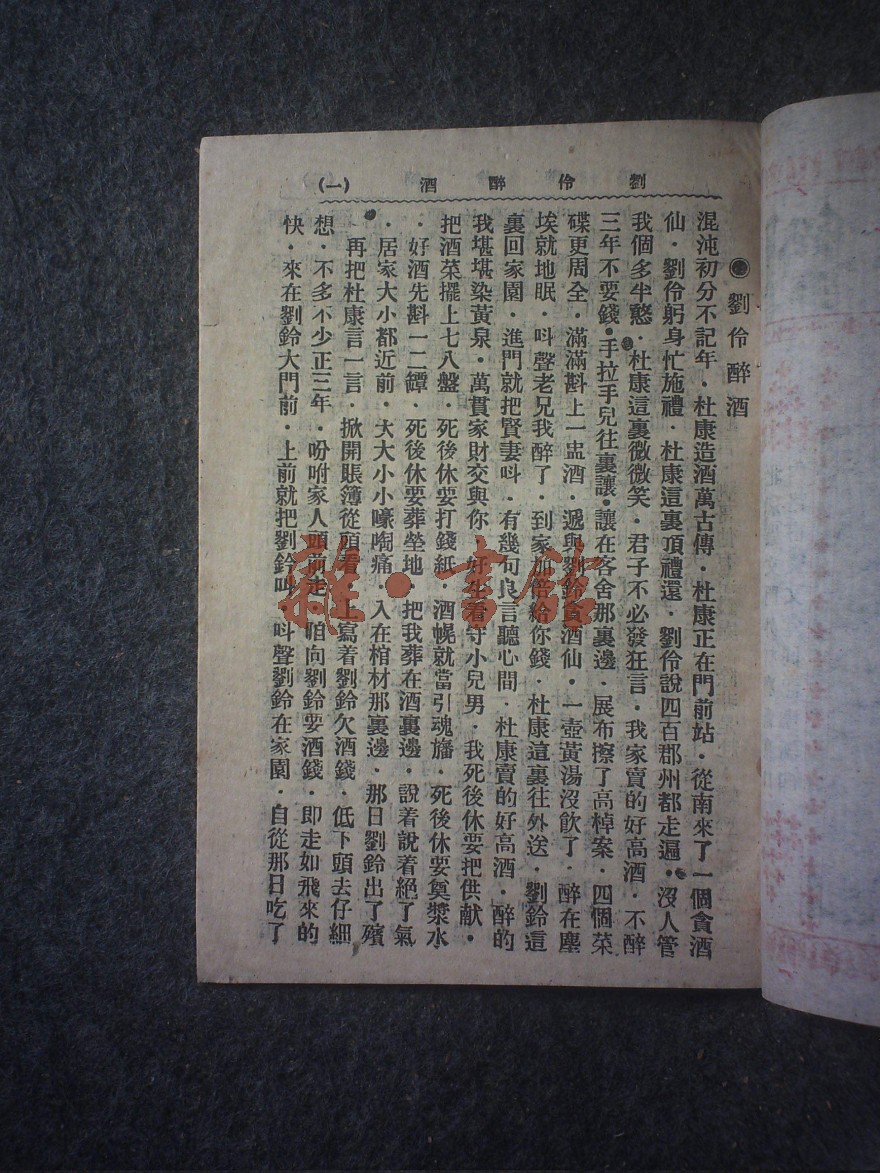 劉伶醉酒 (一)
●劉伶醉酒
混沌初分不記年·杜康造酒萬古傳·杜康正在門前站·從南來了一個貪酒
仙·劉伶躬身忙施禮·杜康這裏頂禮還·劉伶說四百郡州都走遍·沒人管
我個多半憨·杜康這裏微微笑·君子不必發狂言·我家賣的好高酒·不醉
三年不要錢·手拉手兒往裏讓·讓在客舍那裏邊·展布擦了高棹案·四個菜
碟更周全·滿滿斟上一盅酒·遞與劉鈴貪酒仙·一壺黃湯沒飲了·醉在塵
埃就地眠·呌聲老兄我醉了·到家加倍給你錢·杜康這裏往外送·劉鈴這
裏回家園·進門就把賢妻呌·有幾句良言聽心間·杜康賣的好高酒·醉的
我堪堪染黃泉·萬貫家財交與你·好生看守小兒男·我死後休要把供献·
把酒菜擺上七八盤·死後休要打錢紙·酒幌就當引魂旛·死後休要奠漿水
·好酒先斟一二罈·死後休要葬塋地·把我葬在酒裏邊·說着說着絕了氣
·居家大小都近前·大大小小嚎啕痛·入在棺材那裏邊·那日劉鈴出了殯
再把杜康言一言·掀開賬簿從頭看·上寫着劉鈴欠酒錢·低下頭去仔細
想·不多不少正三年·吩咐家人頭前走·咱向劉鈴要酒錢·即走如飛來的
快·來在劉鈴大門前·上前就把劉鈴呌·呌聲劉鈴在家園·自從那日吃了
雜·書館